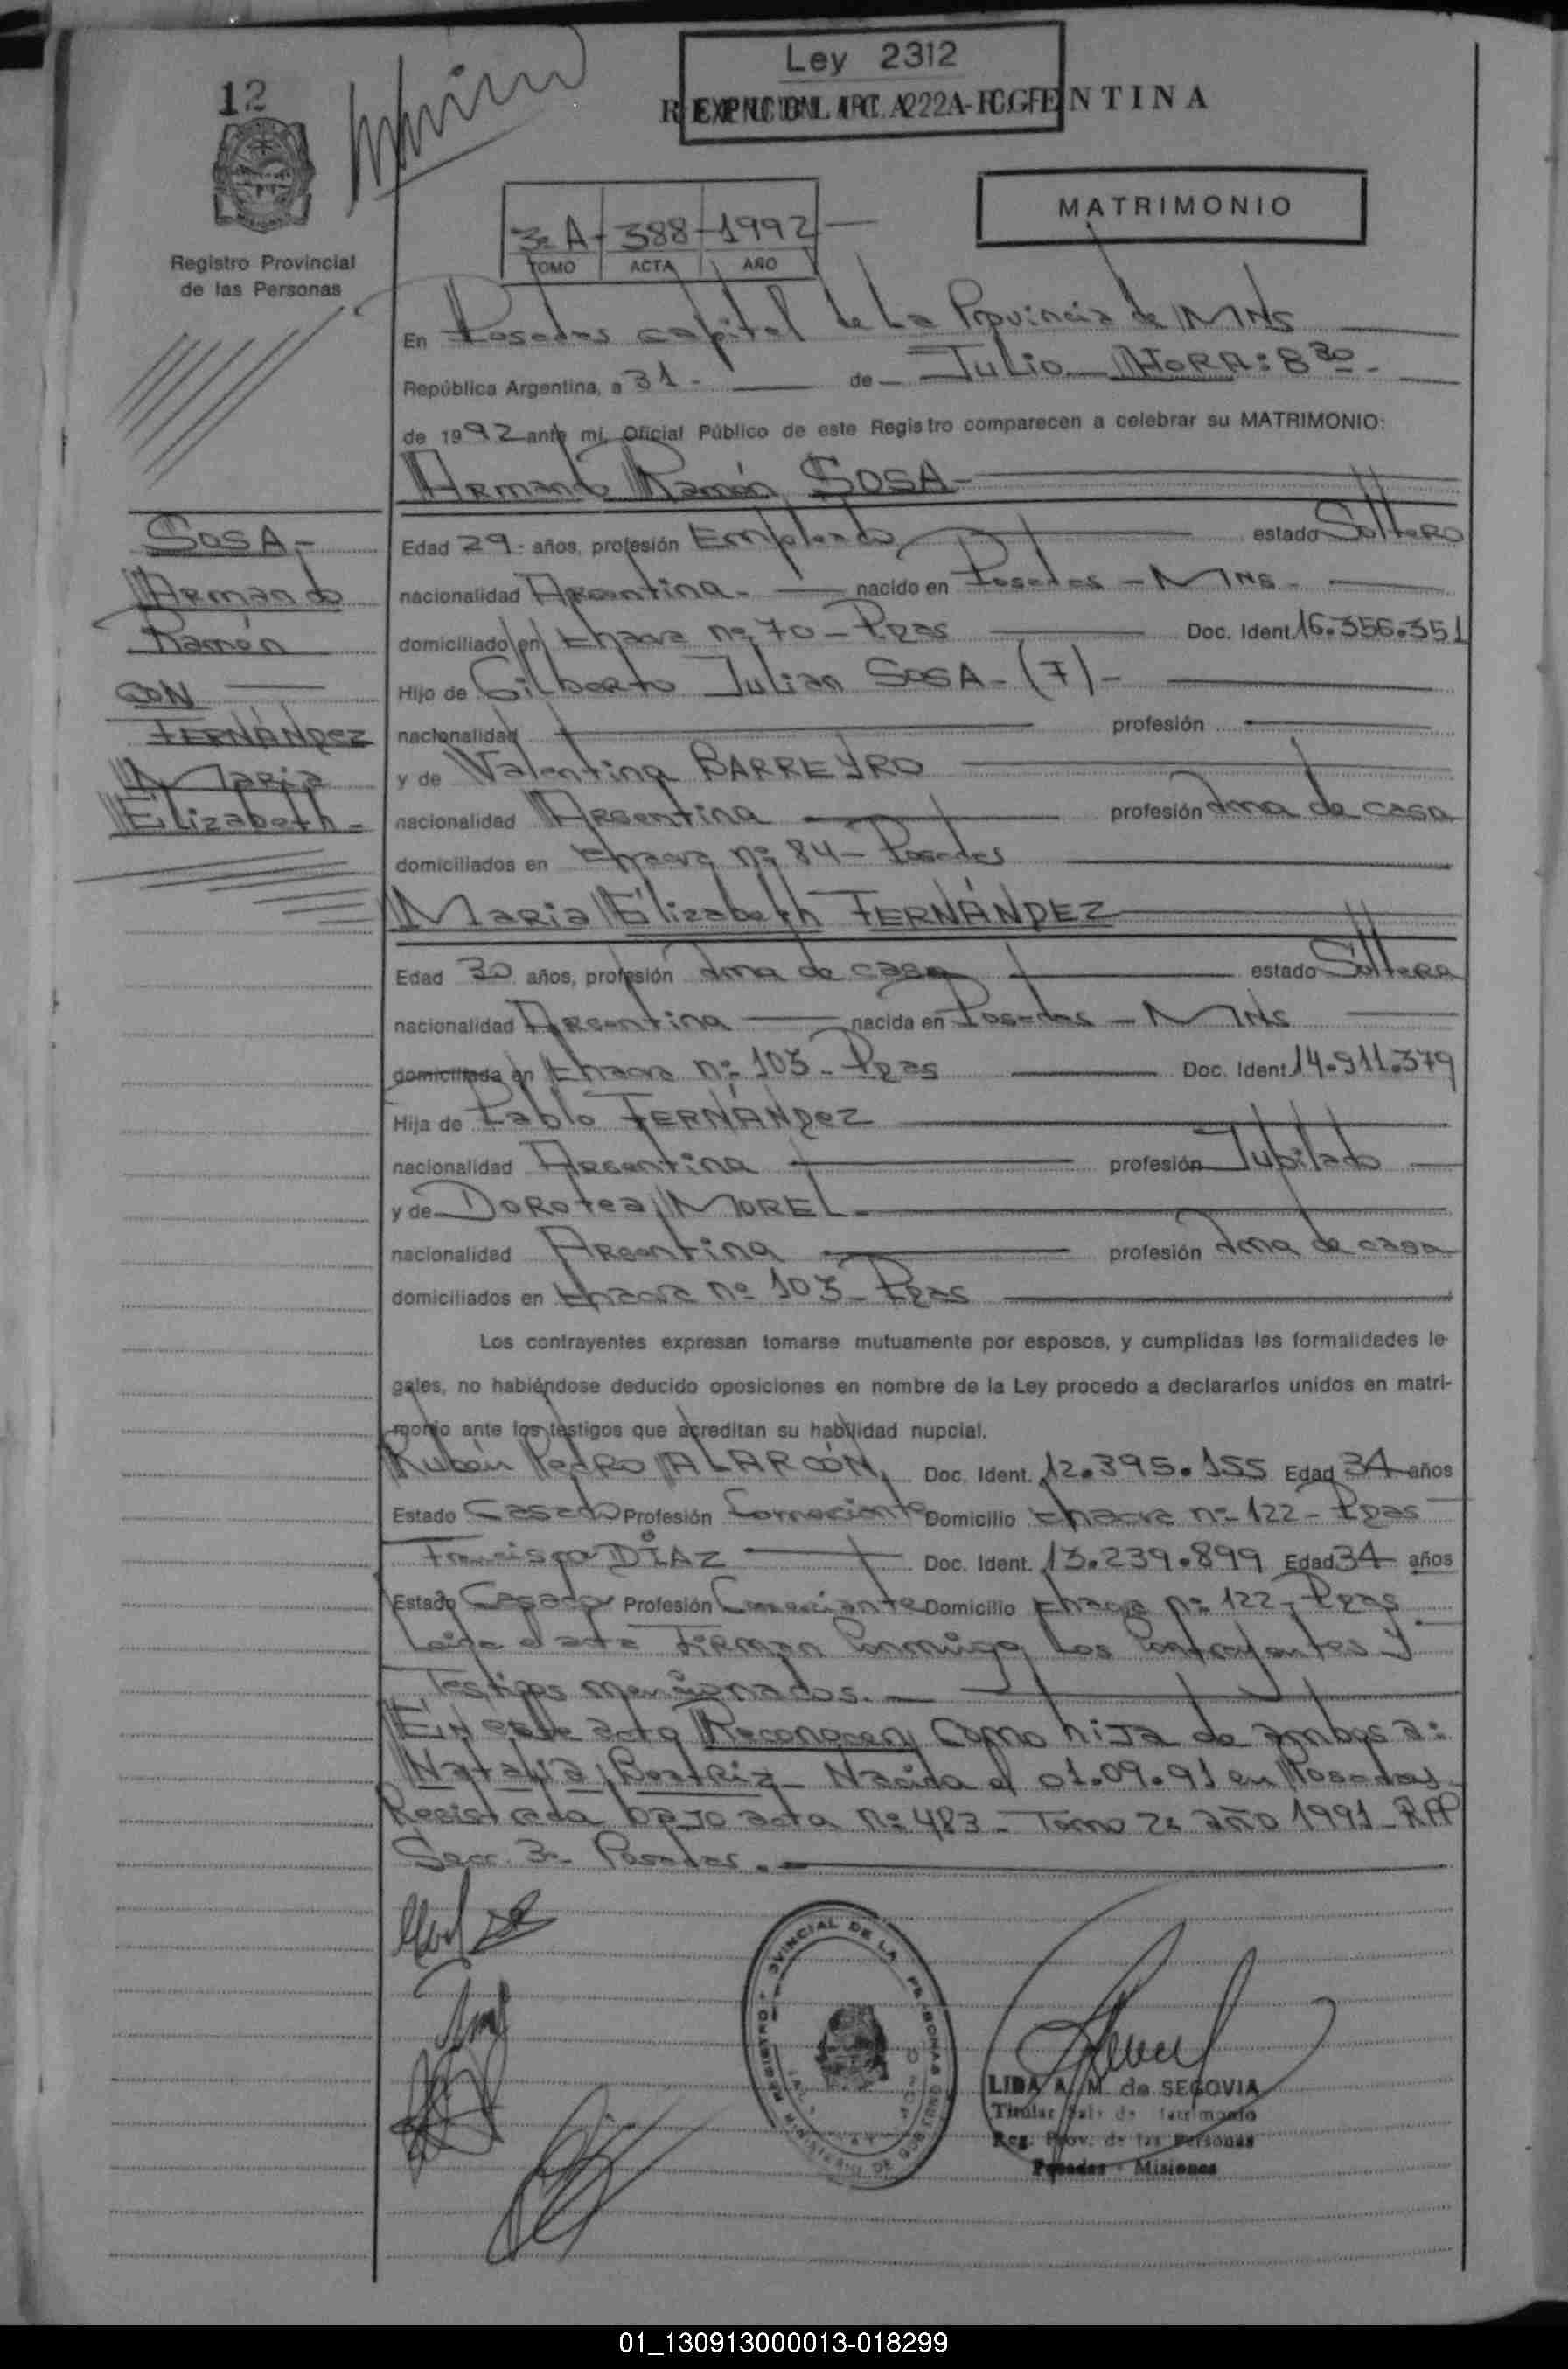 12
Ley 2312
MATRIMONIO
3a A - 388 - 1992
TOMO ACTA AÑO
Registro Provincial
de las Personas
En Posadas capital de La Provincia de Mns
República Argentina, a 31 - de Julio HORA: 8 30 -
de 1992 ante mí, Oficial Público de este Registro comparecen a celebrar su MATRIMONIO:
Armando Ramón SOSA -
SOSA -
Armando
Ramón
CON
FERNÁNDEZ
María
Elizabeth -
Edad 29 - años, profesión Empleado estado Soltero
nacionalidad Argentina - nacido en Posadas - Mns -
domiciliado en Chacra nº 70 - Pdas Doc. Ident. 16.356.351
Hijo de Gilberto Julian SOSA - (7) -
nacionalidad profesión
y de Valentina BARREYRO
nacionalidad Argentina profesión Ama de casa
domiciliados en Chacra nº 84 - Posadas
Maria Elizabeth FERNÁNDEZ
Edad 30 años, profesión Ama de casa estado Soltera
nacionalidad Argentina nacida en Posadas - Mns
domiciliada en Chacra nº 103 - Pdas Doc. Ident. 14.911.379
Hija de Pablo FERNÁNDEZ
nacionalidad Argentina profesión Jubilado
y de Dorotea MOREL -
nacionalidad Argentina profesión Ama de casa
domiciliados en Chacra nº 103 - Pdas
Los contrayentes expresan tomarse mutuamente por esposos, y cumplidas las formalidades le-
gales, no habiéndose deducido oposiciones en nombre de la Ley procedo a declararlos unidos en matri-
monio ante los testigos que acreditan su habilidad nupcial.
Rubén Pedro ALARCÓN Doc. Ident. 12.395.155 Edad 34 años
Estado Casado Profesión Comerciante Domicilio Chacra nº 122 - Pdas
Francisca DÍAZ Doc. Ident. 13.239.899 Edad 34 años
Estado Casada Profesión Comerciante Domicilio Chacra nº 122 - Pdas
Leída el acta Firman Conmigo Los Contrayentes y
Testigos mencionados. -
En este acto Reconocen como hija de ambos a:
Natalia Beatriz - Nacida el 01.09.91 en Posadas
Registrada bajo acta nº 483 - Tomo 2º año 1991 - RPP
Secc. 3a Posadas. -
LIDA A. M. de SEGOVIA
Titular Sala de Matrimonio
Reg. Prov. de las Personas
Posadas - Misiones
01_130913000013-018299